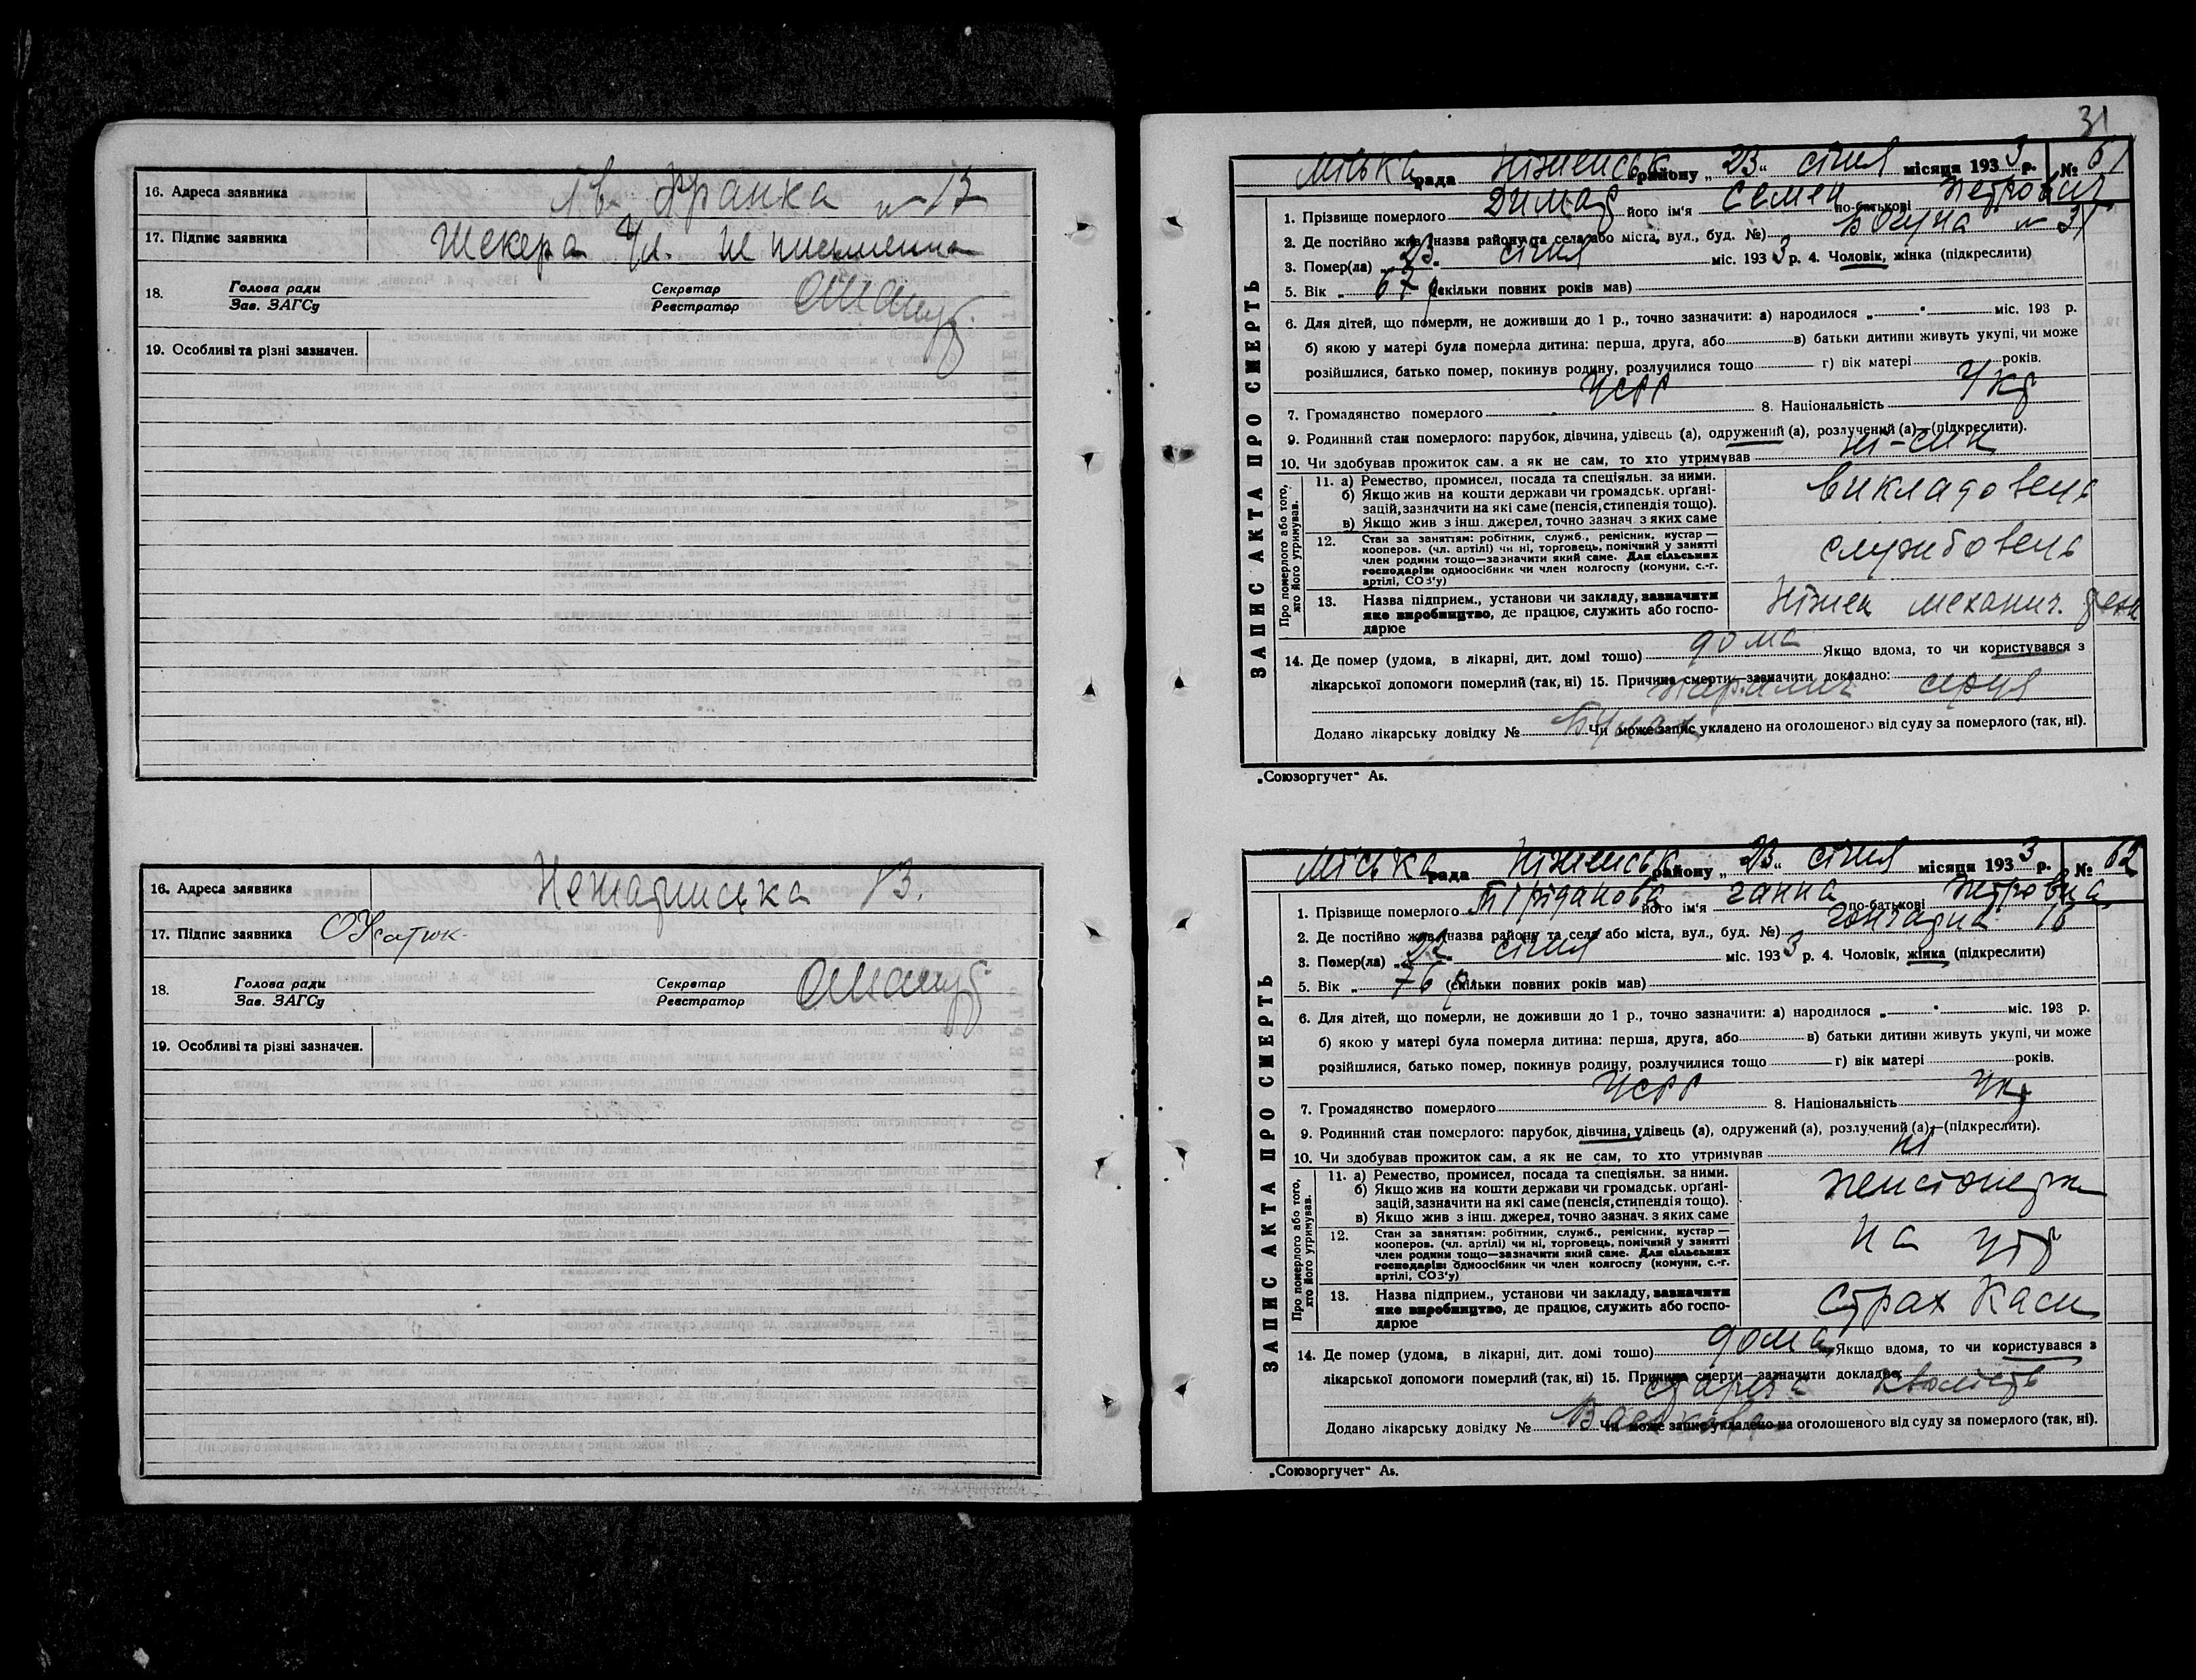 16. Адреса заявника Ів. Франка № 17
17. Підпис заявника Шекера Ул. не письменна
18. Голова ради Секретар
Зав. ЗАГСу Реєстратор
19. Особливі та різні зазначен.
16. Адреса заявника 13.
17. Підпис заявника
18. Голова ради Секретар
Зав. ЗАГСу Реєстратор
19. Особливі та різні зазначен.
31
ЗАПИС АКТА ПРО СМЕРТЬ
Міська рада Ніженськ району „23“ січня місяця 1933 р. № 61
1. Прізвище померлого його ім'я Семен по-батькові Петрович
2. Де постійно жив (назва району та села або міста, вул., буд. №) Богуна №
3. Помер(ла) „23“ січня міс. 1933 р. 4. Чоловік, жінка (підкреслити)
5. Вік „ 67 р (скільки повних років мав)
6. Для дітей, що померли, не доживши до 1 р., точно зазначити: а) народилося „ “ міс. 193 р.
б) якою у матері була померла дитина: перша, друга, або в) батьки дитини живуть укупі, чи може
розійшлися, батько помер, покинув родину, розлучилися тощо г) вік матері років.
7. Громадянство померлого УСРР 8. Національність Укр
9. Родинний стан померлого: парубок, дівчина, удівець (а), одружений (а), розлучений (а)—(підкреслити).
10. Чи здобував прожиток сам, а як не сам, то хто утримував
Про померлого або того, хто його утримував.
11. а) Ремество, промисел, посада та спеціяльн. за ними. викладовець
б) Якщо жив на кошти держави чи громадськ. орґані-
зацій, зазначити на які саме (пенсія, стипендія тощо).
в) Якщо жив з інш. джерел, точно зазнач. з яких саме
12. Стан за заняттям: робітник, служб., ремісник, кустар— службовець
кооперов. (чл. артілі) чи ні, торговець, помічний у занятті
член родини тощо—зазначити який саме. Для сільських
господарів: одноосібник чи член колгоспу (комуни, с.-г.
артілі, СОЗ'у)
13. Назва підприєм., установи чи закладу, зазначити Ніжен механич.
яке виробництво, де працює, служить або госпо-
дарює
14. Де помер (удома, в лікарні, дит. домі тощо) дома Якщо вдома, то чи користувався з
лікарської допомоги померлий (так, ні) 15. Причина смерти—зазначити докладно: параліч серця
Додано лікарську довідку № Чи може запис укладено на оголошеного від суду за померлого (так, ні).
„Союзоргучет“ Аб.
ЗАПИС АКТА ПРО СМЕРТЬ
Міська рада Ніженськ району „23“ січня місяця 1933 р. № 62
1. Прізвище померлого його ім'я Ганна по-батькові Петровна
2. Де постійно жив (назва району та села або міста, вул., буд. №)
3. Помер(ла) „22“ січня міс. 1933 р. 4. Чоловік, жінка (підкреслити)
5. Вік „ 76 р. (скільки повних років мав)
6. Для дітей, що померли, не доживши до 1 р., точно зазначити: а) народилося „ “ міс. 193 р.
б) якою у матері була померла дитина: перша, друга, або в) батьки дитини живуть укупі, чи може
розійшлися, батько помер, покинув родину, розлучилися тощо г) вік матері років.
7. Громадянство померлого УСРР 8. Національність Укр
9. Родинний стан померлого: парубок, дівчина, удівець (а), одружений (а), розлучений (а)—(підкреслити).
10. Чи здобував прожиток сам, а як не сам, то хто утримував ні
Про померлого або того, хто його утримував.
11. а) Ремество, промисел, посада та спеціяльн. за ними. пенсіонерка
б) Якщо жив на кошти держави чи громадськ. орґані-
зацій, зазначити на які саме (пенсія, стипендія тощо).
в) Якщо жив з інш. джерел, точно зазнач. з яких саме
12. Стан за заняттям: робітник, служб., ремісник, кустар— на утр
кооперов. (чл. артілі) чи ні, торговець, помічний у занятті
член родини тощо—зазначити який саме. Для сільських
господарів: одноосібник чи член колгоспу (комуни, с.-г.
артілі, СОЗ'у)
13. Назва підприєм., установи чи закладу, зазначити Страх Каси
яке виробництво, де працює, служить або госпо-
дарює
14. Де помер (удома, в лікарні, дит. домі тощо) дома Якщо вдома, то чи користувався з
лікарської допомоги померлий (так, ні) 15. Причина смерти—зазначити докладно: стареча кволість
Додано лікарську довідку № Чи може запис укладено на оголошеного від суду за померлого (так, ні).
„Союзоргучет“ Аб.